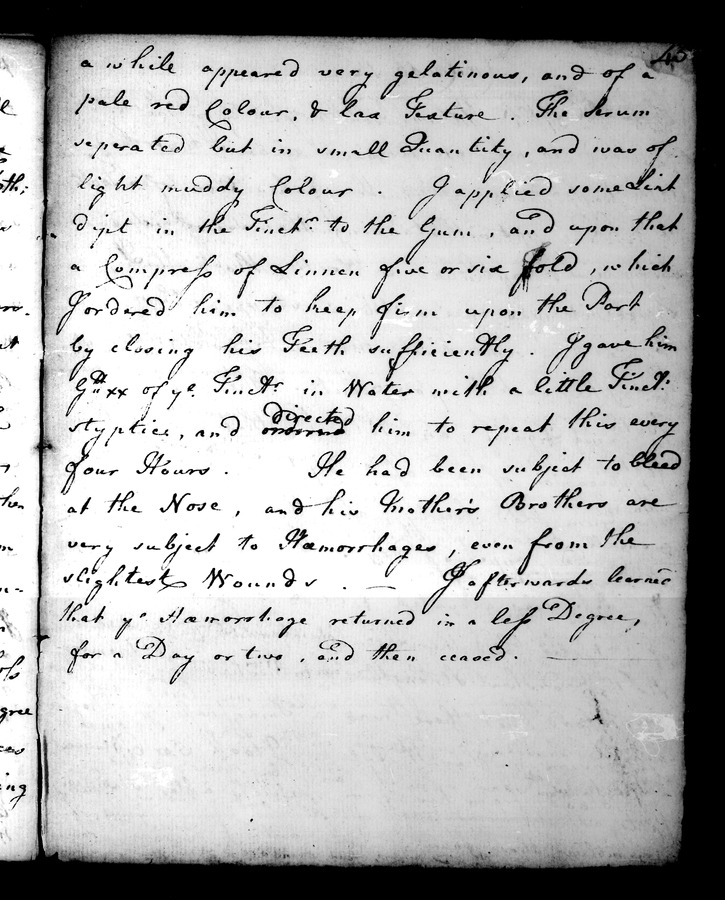 45
a while appeared very gelatinous, and of a
pale red Colour, & lax Texture. The Serum
seperated but in small Quantity, and was of
light muddy Colour. I applied some Lint
dipt in the Tinct.r to the Gum, and upon that
a Compress of Linnen five or six fold, which
I ordered him to keep firm upon the Part
by closing his Teeth sufficiently. I gave him
Gtt xx of ye. Tinctr. in Water with a little Tinct:
styptic, and directed him to repeat this every
four Hours. He had been subject to bleed
at the Nose, and his Mother's Brothers are
very subject to Hæmorrhages, even from the
slightest Wounds. — I afterwards learned
that ye Hæmorrhage returned in a less Degree,
for a Day or two, and then ceased. —